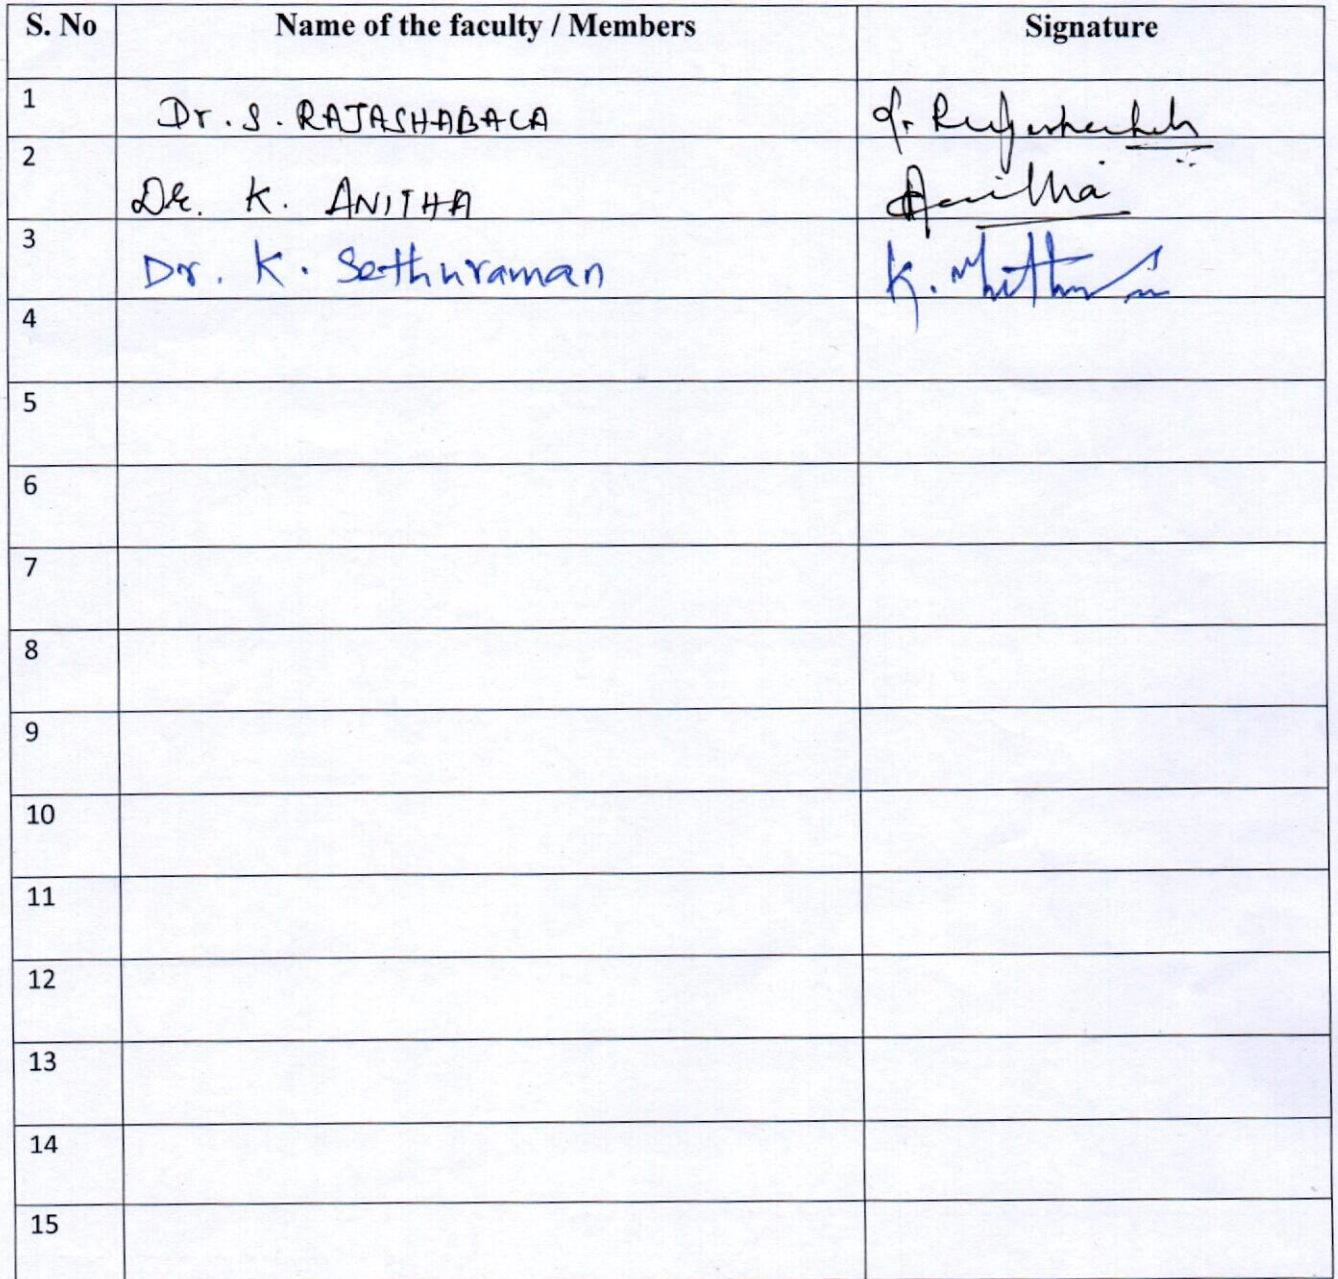 S. No Name of the faculty / Members Signature
1 Dr. S. RAJASHABALA
2 Dr. K. ANITHA Anitha
3 Dr. K. Sethuraman
4
5
6
7
8
9
10
11
12
13
14
15